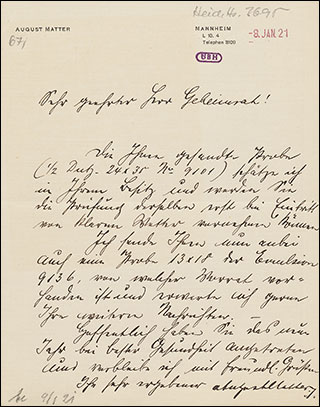 Heid. Hs. 3695
AUGUST MATTER
67,
MANNHEIM
L 10. 4
Telephon
-8. JAN. 21
UBH
Sehr geehrter Herr Geheimrat!
Die Ihnen gesandte Probe
(1/2 Dutz. 24x35 No 9101) schätze ich
in Ihrem Besitz und werden Sie
die Prüfung derselben erst bei Eintritt
von klarem Wetter vornehmen können.
Ich sende Ihnen nun anbei
auch eine Probe 13x18 der Emulsion
9136, von welcher Vorrat vor-
handen ist und erwarte ich gerne
Ihre weiteren Nachrichten.
Hoffentlich haben Sie das neue
Jahr bei bester Gesundheit angetreten
und verbleibe ich mit freundl. Grüßen
Ihr sehr ergebener August Matter
9/1 21